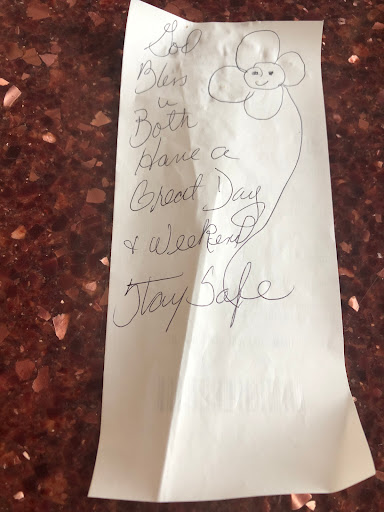 God
Bless
u
Both
Have a
Great Day
& Weekend
Stay Safe